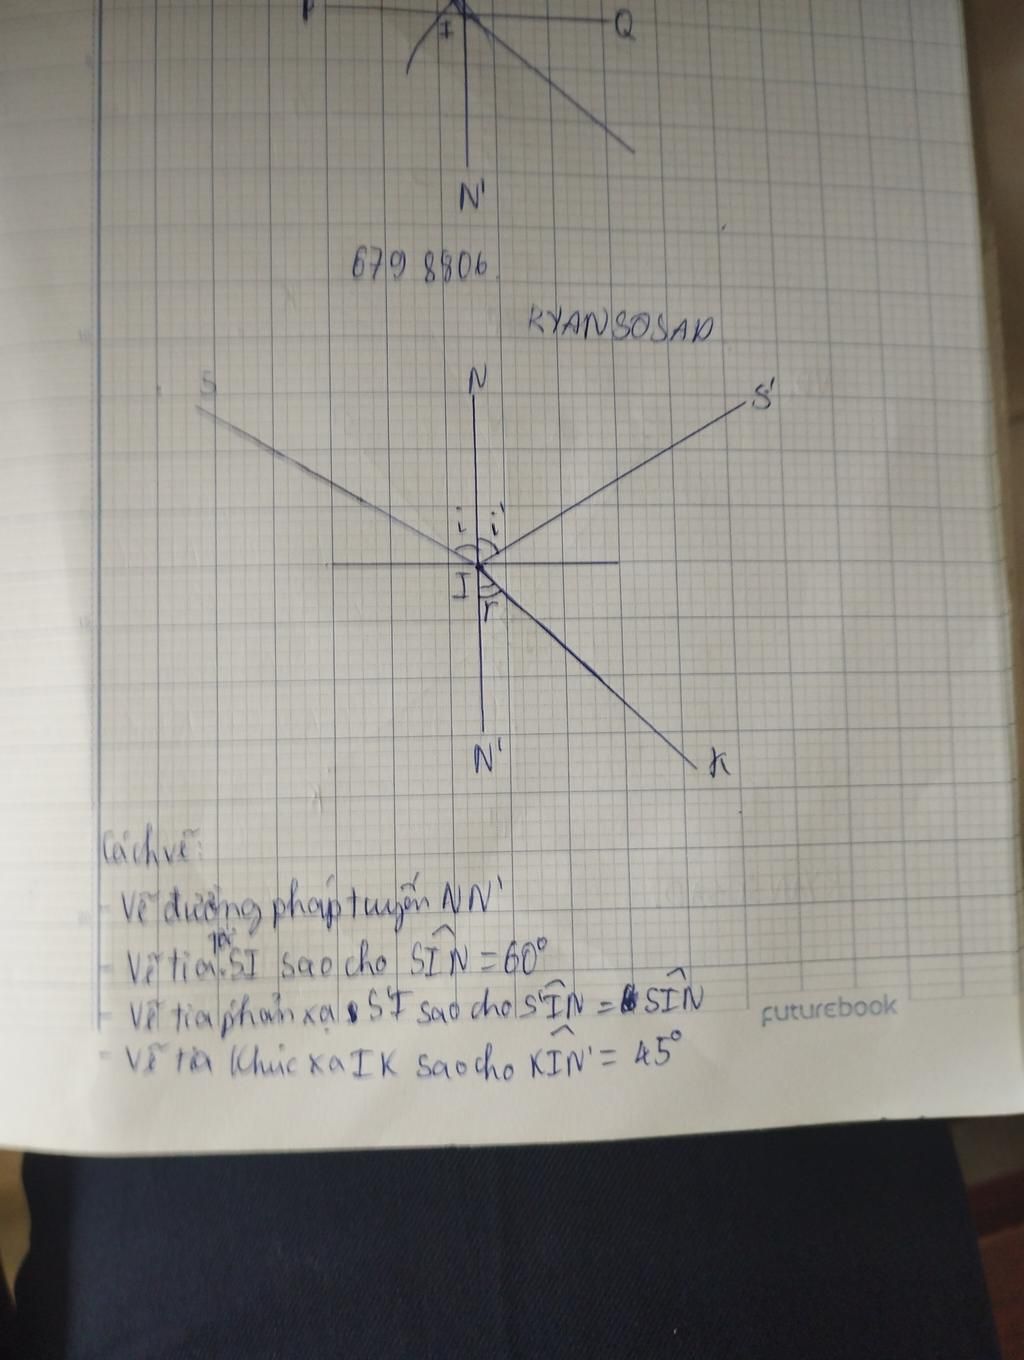 I
Q
N'
679 8806
RYANSOSAD
N
S
S'
i i'
I
r
N'
K
Cách vẽ:
- Vẽ đường pháp tuyến NN'
- Vẽ tia tới SI sao cho SÎN = 60°
- Vẽ tia phản xạ S'I sao cho S'ÎN = SÎN
- Vẽ tia khúc xạ IK sao cho KÎN' = 45°
futurebook